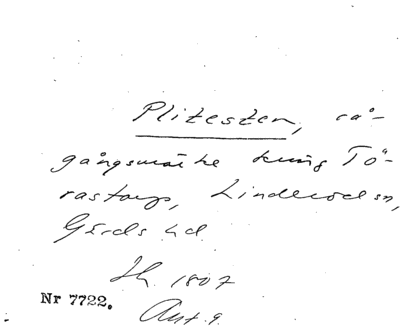 Plitesten, rå-
gångsmärke kring Tö-
rastorp, Linderöds sn,
Gärds hd.
Sk. 1807
Nr 7722.
Akt 9.